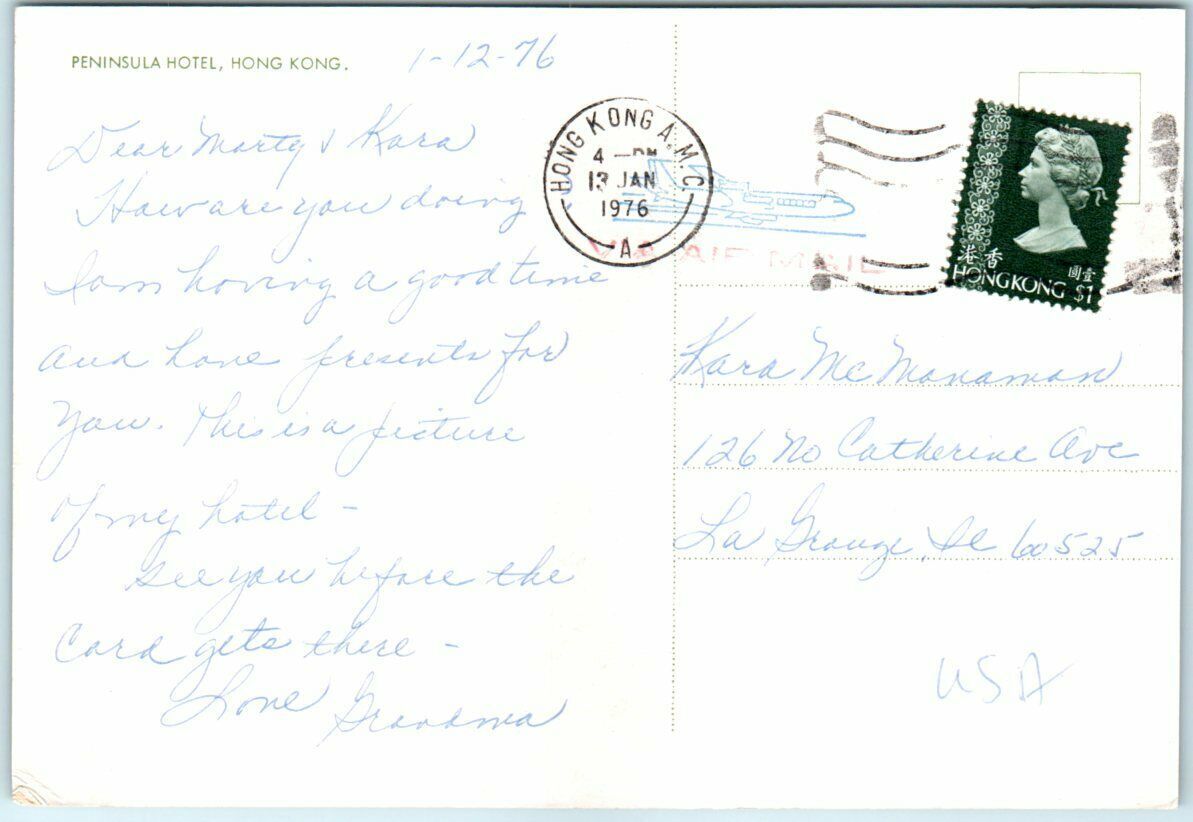 PENINSULA HOTEL, HONG KONG.
1-12-76
Dear Marty & Kara
How are you doing
I am having a good time
and have presents for
you. This is a picture
of my hotel -
See you before the
Card gets there -
Love Grandma
HONG KONG A.M.C.
4 - PM
13 JAN
1976
A
VIA AIR MAIL
香港
壹圓
HONG KONG $1
Kara McManaman
126 No Catherine Ave
La Grange, Il 60525
USA